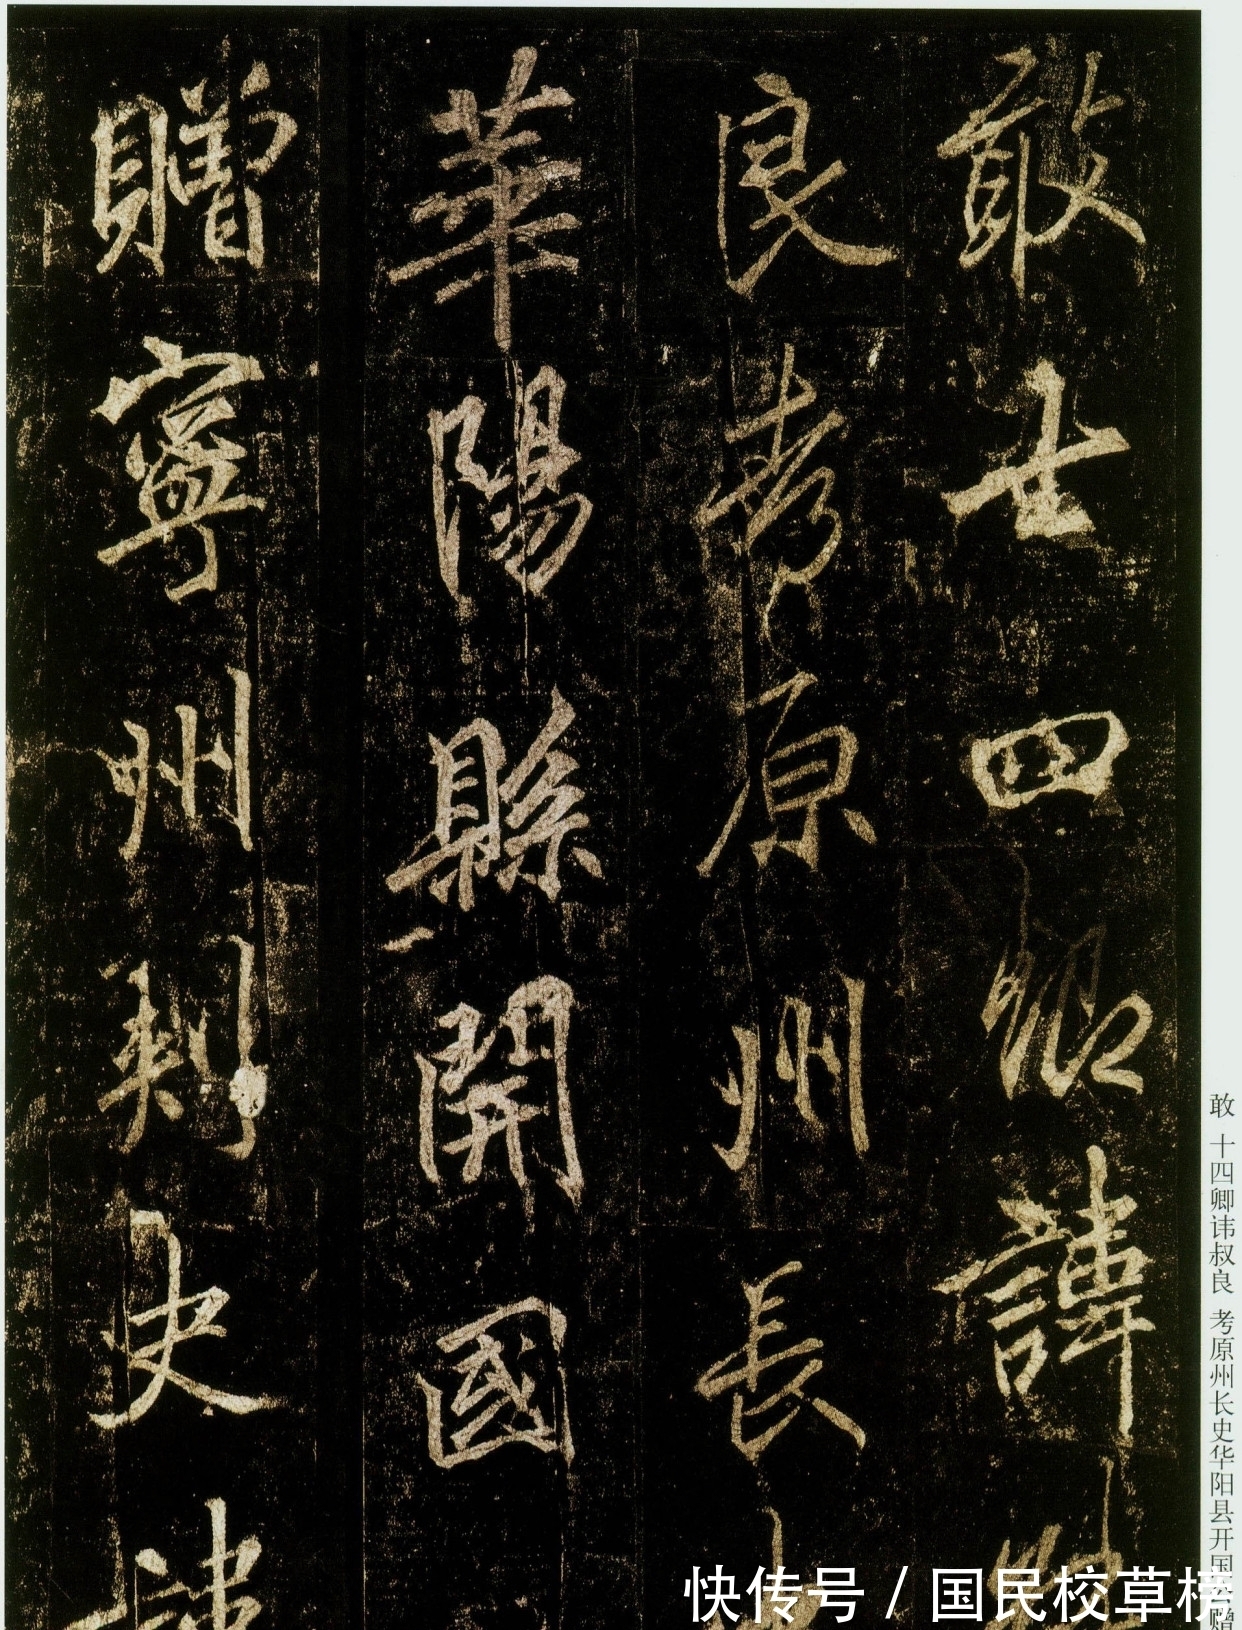 敢士四卿諱
良考原州長
華陽縣開國
贈寧州刺史
敢 十四卿讳叔良 考原州长史华阳县开国
快传号 / 国民校草榜